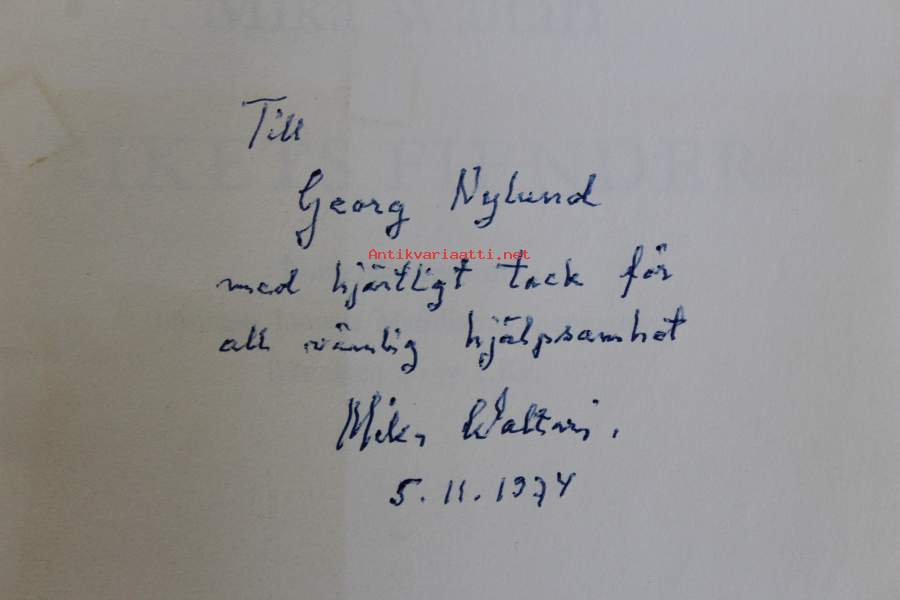 Mika Waltari
RIKETS FIENDER
Till
Georg Nylund
Antikvariaatti.net
med hjärtligt tack för
all vänlig hjälpsamhet
Mika Waltari.
5.11.1974